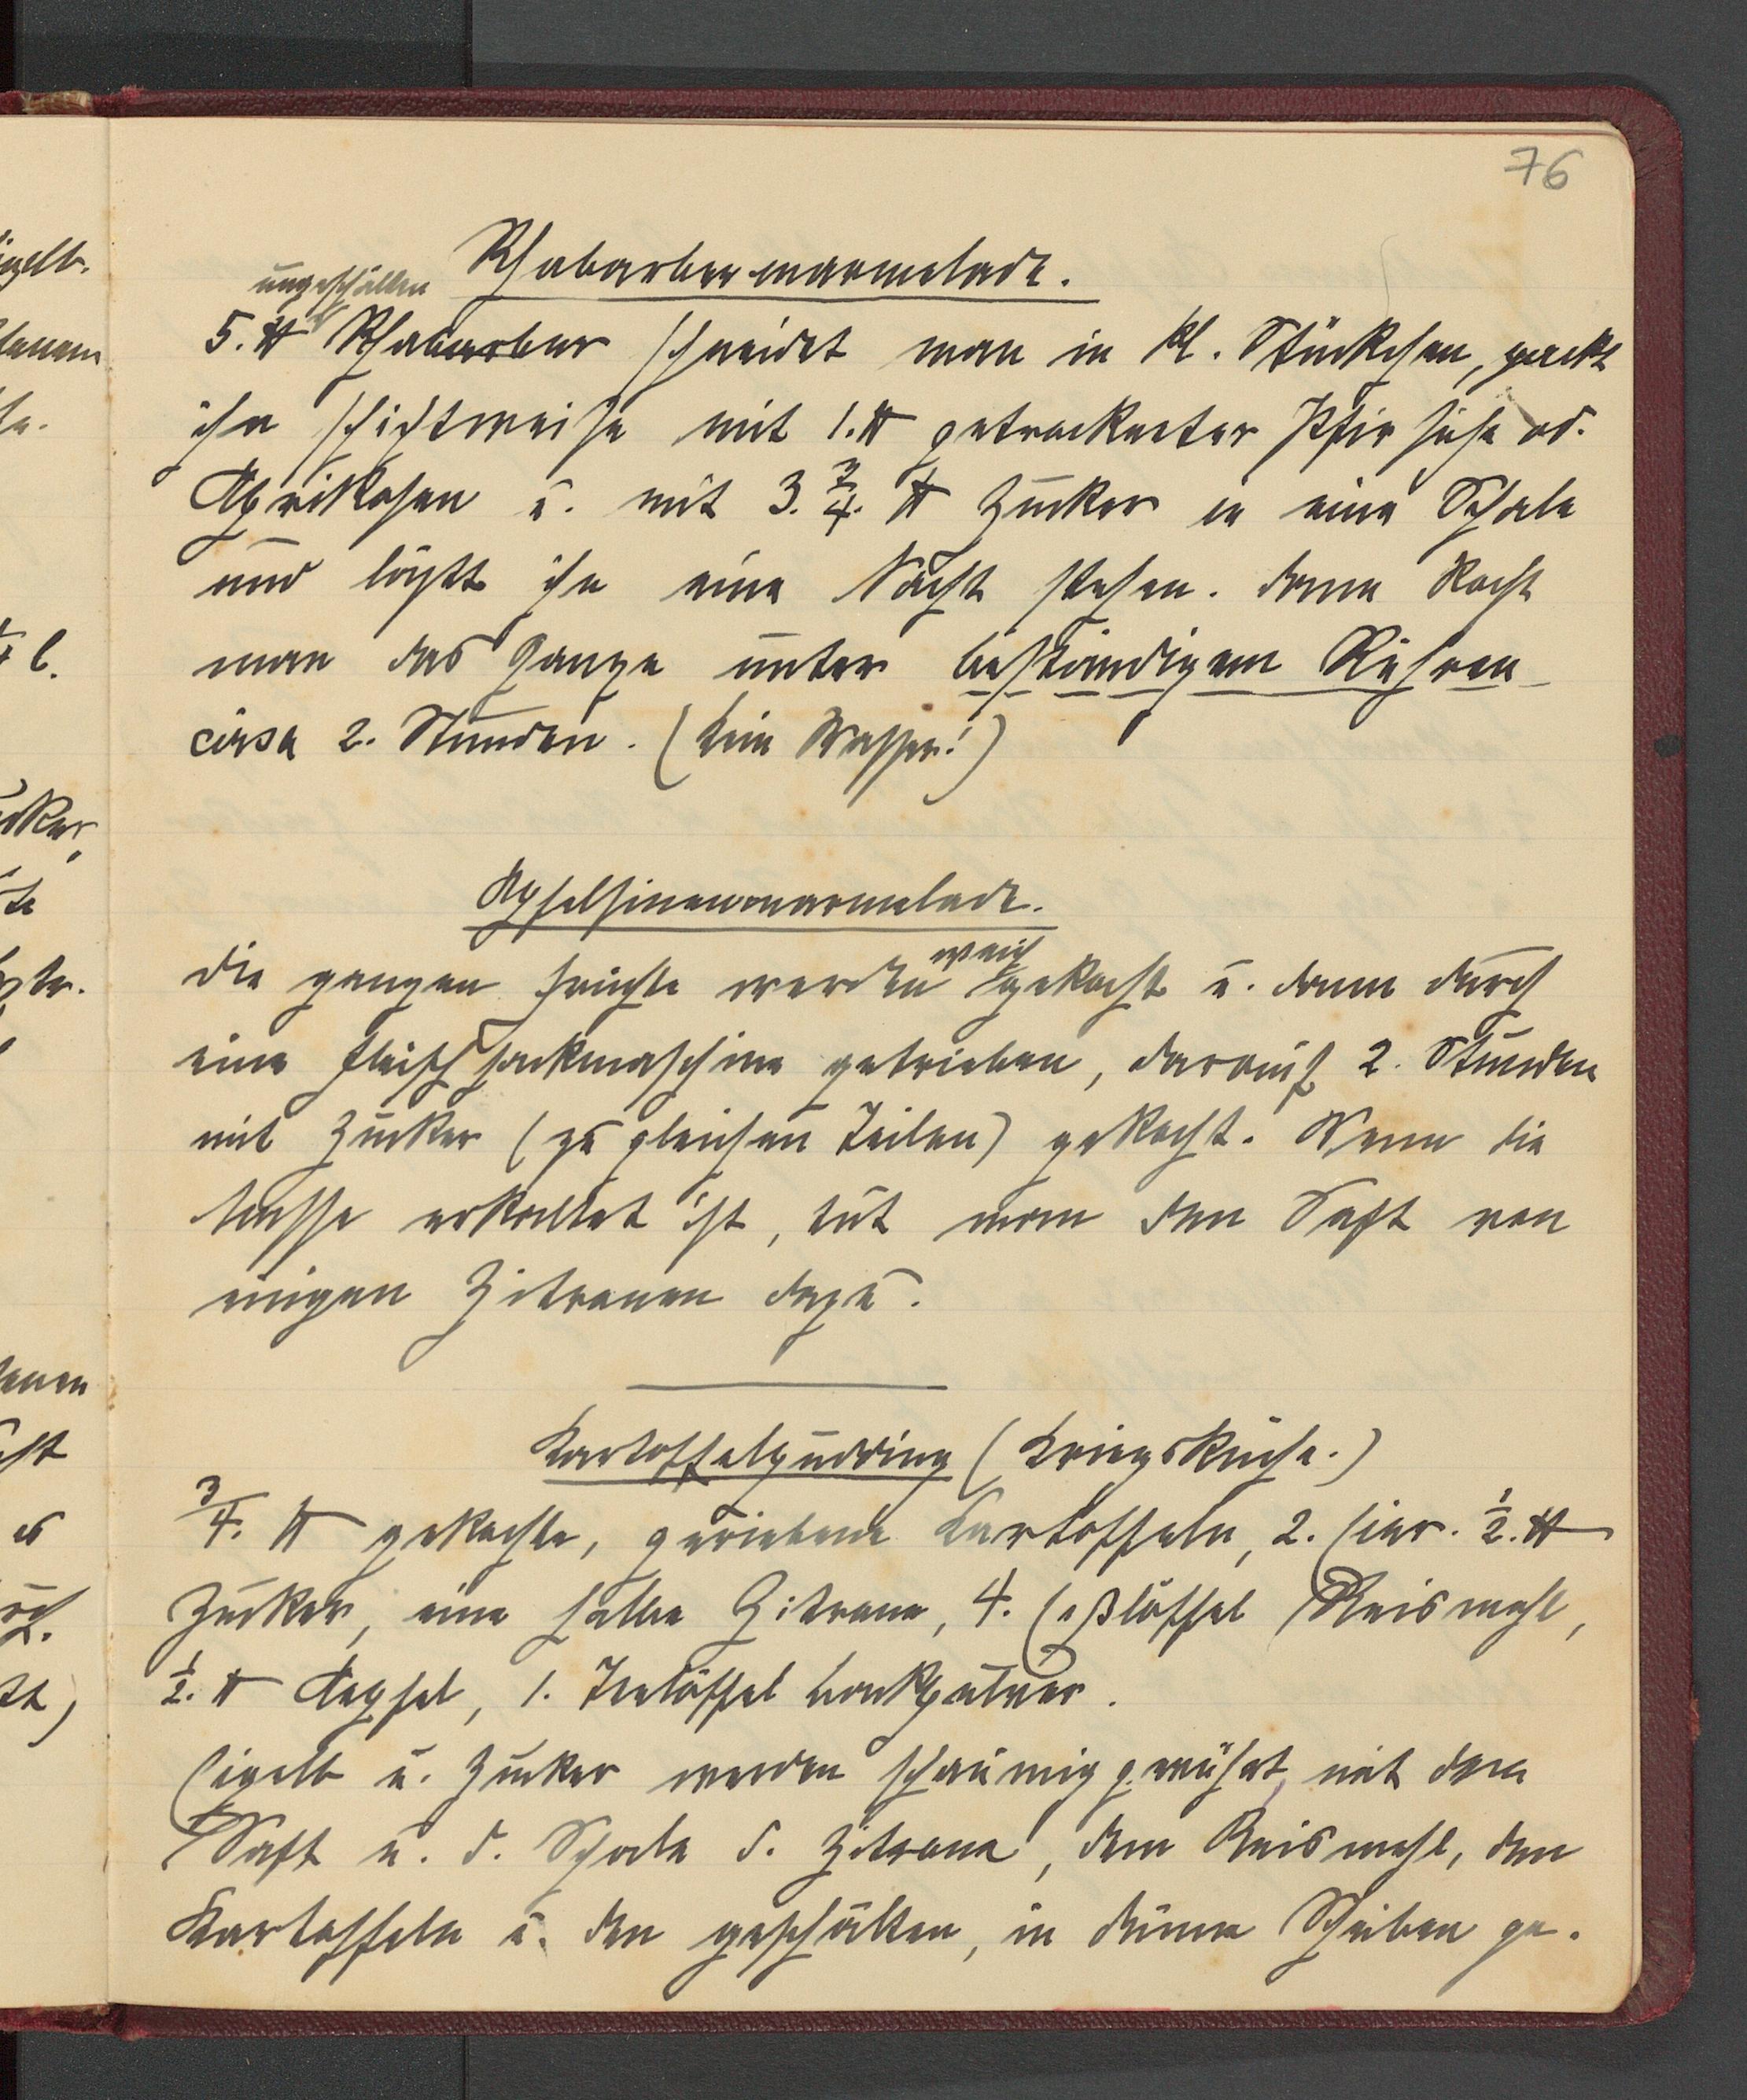 76
Rhabarbermarmelade.
ungeschälten
5. ℔ Rhabarber schneidet man in kl. Stückchen, packt
ihn schichtweise mit 1. ℔ getrockneter Pfirsiche od.
Aprikosen u. mit 3. 3/4. ℔ Zucker in eine Schale
und läßt ihn eine Nacht stehen. dann kocht
man das Ganze unter beständigem Rühren
circa 2. Stunden. (Kein Wasser!)
Apfelsinenmarmelade.
weich
Die ganzen Früchte werden gekocht u. dann durch
eine Fleischhackmaschine getrieben, darauf 2. Stunden
mit Zucker (zu gleichen Teilen) gekocht. Wenn die
Masse erkaltet ist, tut man den Saft von
einigen Zitronen dazu.
Kartoffelpudding (Kriegsküche.)
3/4. ℔ gekochte, geriebene Kartoffeln, 2. Eier. 1/2. ℔
Zucker, eine halbe Zitrone, 4. Eßlöffel Reismehl,
1/2. ℔ Aepfel, 1. Teelöffel Backpulver.
Eigelb u. Zucker werden schaumig gerührt, mit dem
Saft u. d. Schale d. Zitrone, dem Reismehl, den
Kartoffeln u. den geschälten, in dünne Scheiben ge-
igelb.
l.